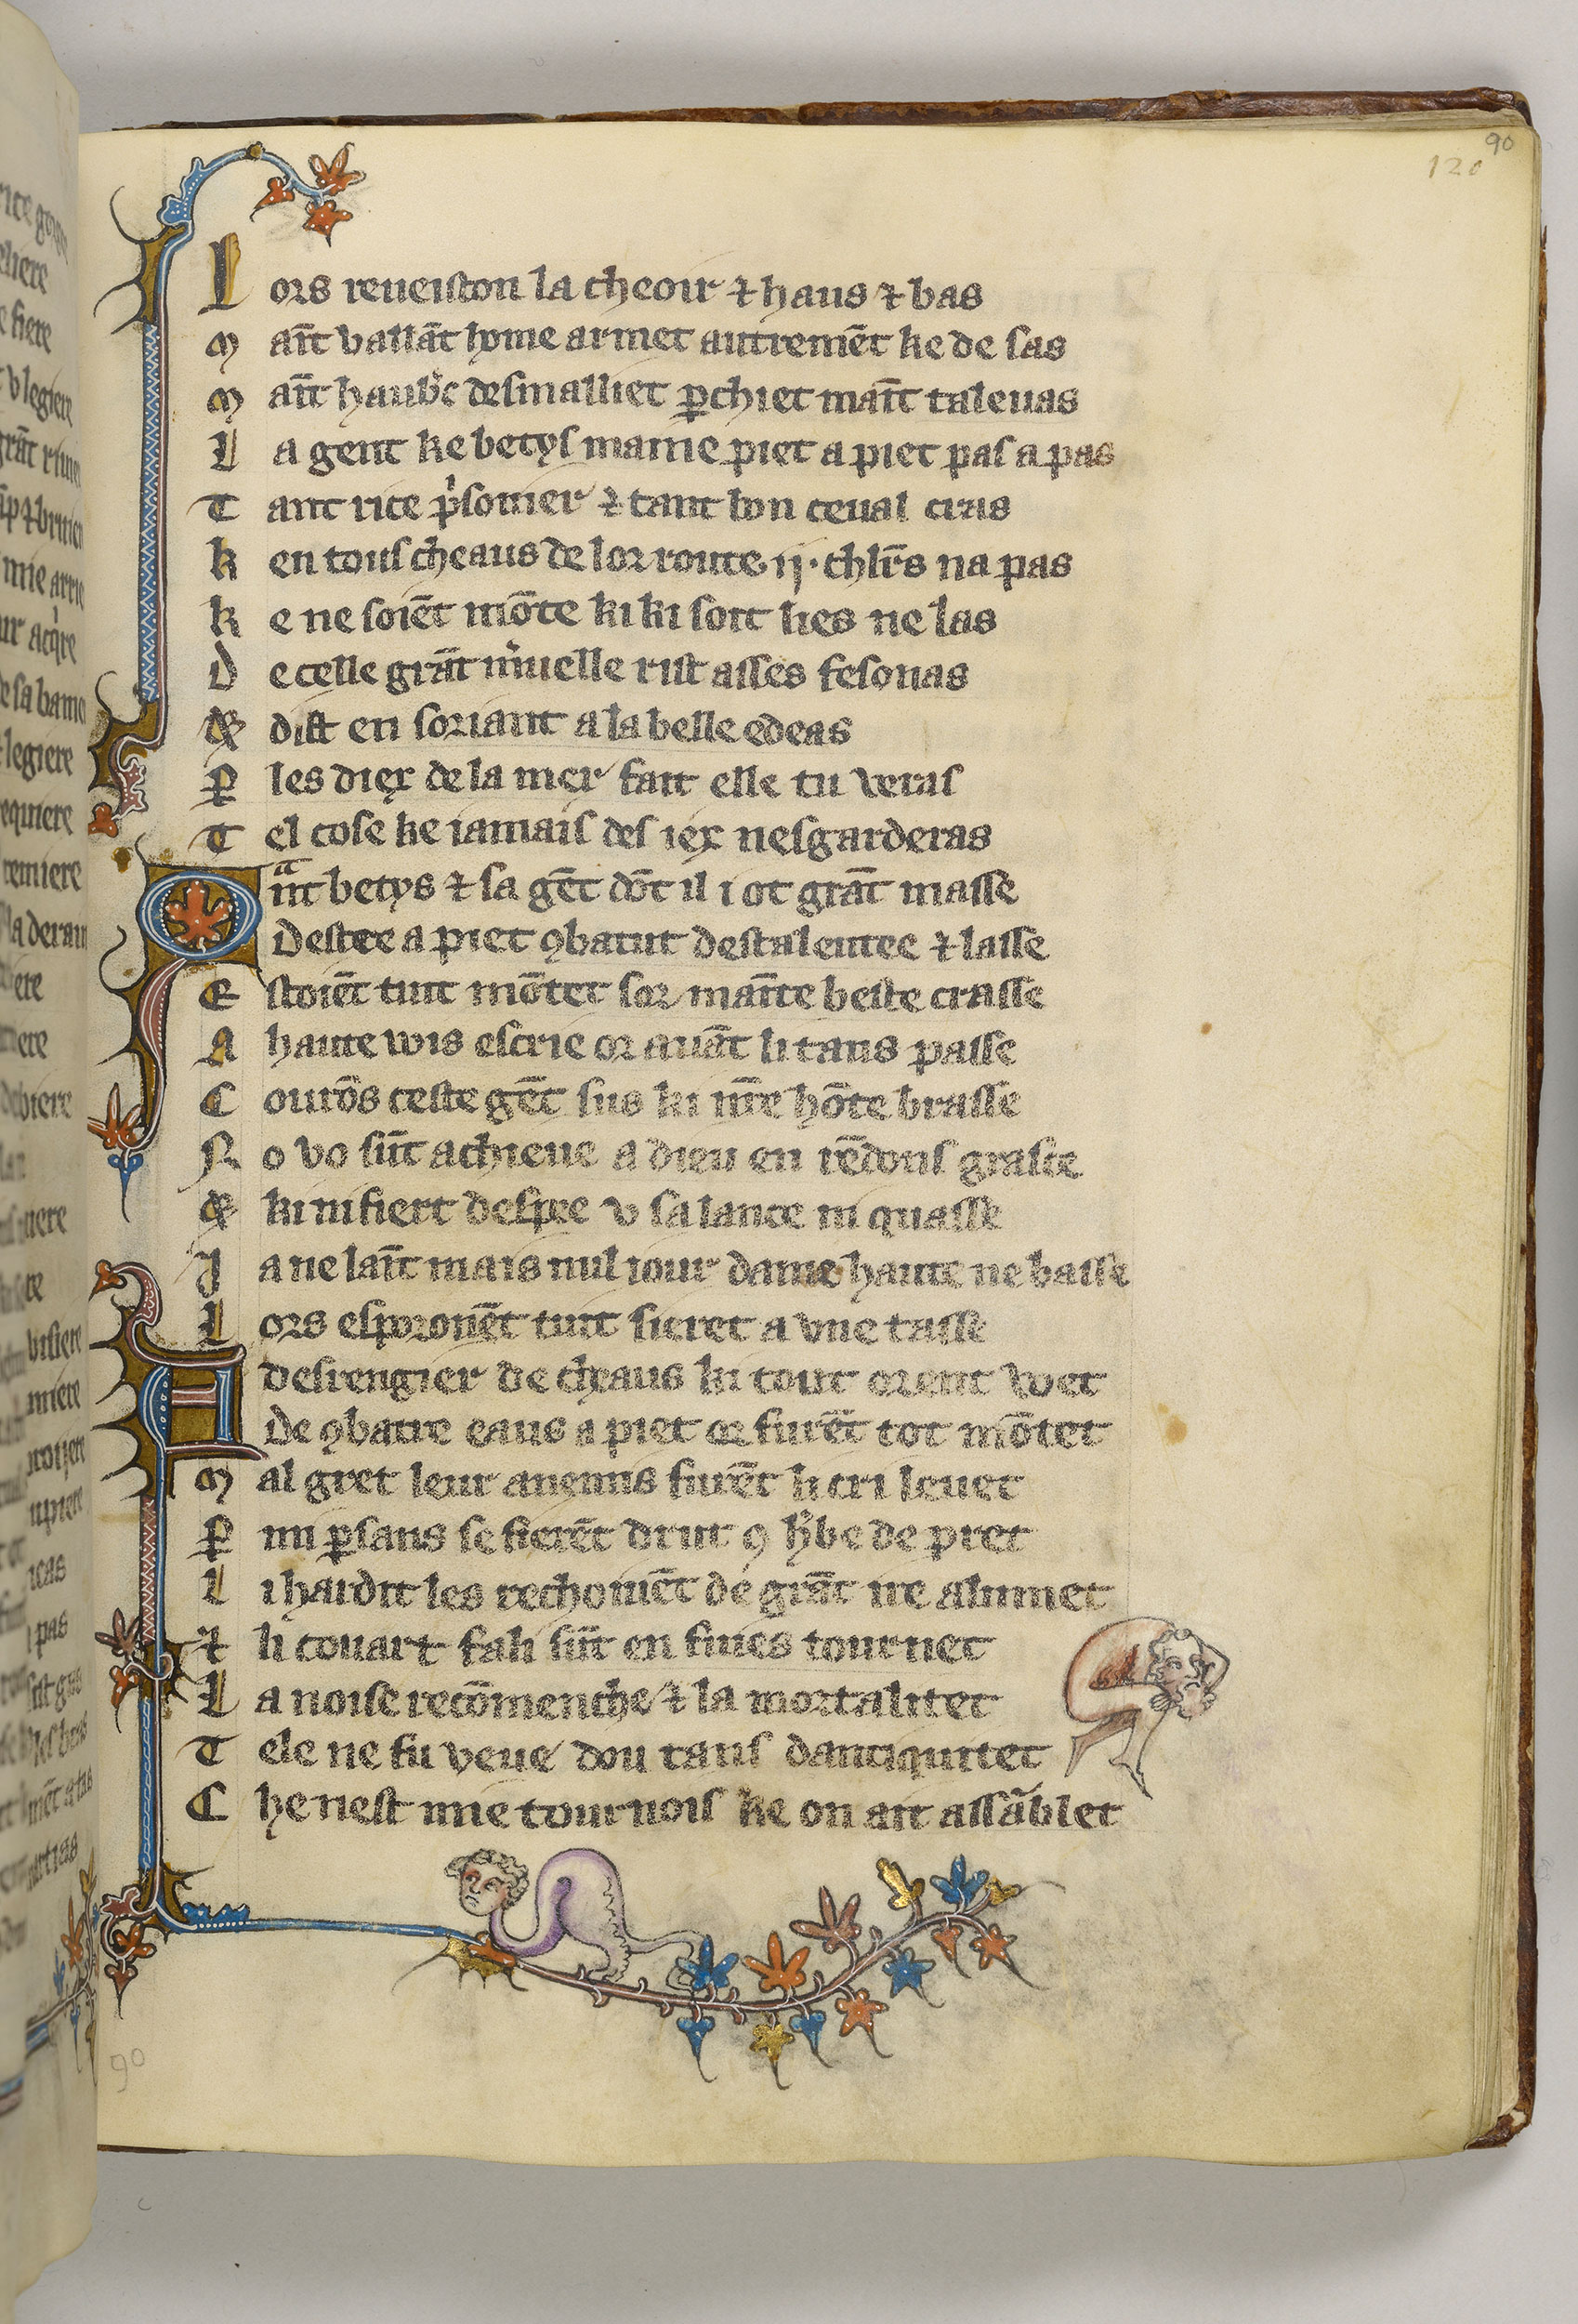 90
120
Lors reueist on la cheoir ⁊ haus ⁊ bas
Mañt vallãt home armet autremẽt ke de sas
Mañt haub'c desmalliet ꝑchiet mañt taleuas
La gent ke betys maine piet a piet pas a pas
Tant rice p'sonier ⁊ tant bon ceual cras
K en tous cheaus de lor route .ij. chlr̃s na pas
Ke ne soiẽt mõte ki ki soit lies ne las
De celle grãt m'uelle rist asses fesonas
& dist en soriant a la belle edeas
Ꝑ les diex de la mer fait elle tu veras
Tel cose ke iamais des iex nesgarderas
Qãnt betys ⁊ sa gẽt dõt il i ot grãt masse
Destre a piet ꝯbatut destalentee ⁊ lasse
Estoiẽt tuit mõtet sor mañte beste crasse
A haute wis escrie or auãt li tans passe
Courõs ceste gẽt sus ki nr̃e hõte brasse
No vo sũt achieue a dieu en rẽdons grasce
& ki ni fiert despee v sa lance ni quasse
Ja ne laĩt mais nul iour dame haute ne basse
Lors esporonẽt tuit sieret a vne tasse
A desrengier de cheaus ki tout orent wet
De ꝯbatre eaus a piet or furẽt tot mõtet
Mal gret leur anemis furẽt li cri leuet
Ꝑ mi ꝑsans se fierẽt druit ꝯ h'be de pret
Li hardit les rechoiuẽt de grãt ire alumet
⁊ li couart fali sũt en fuies tournet
La noise recõmenche ⁊ la mortalitet
Tele ne fu veue dou tans dantiquitet
Che nest mie tournois ke on ait assãblet
90